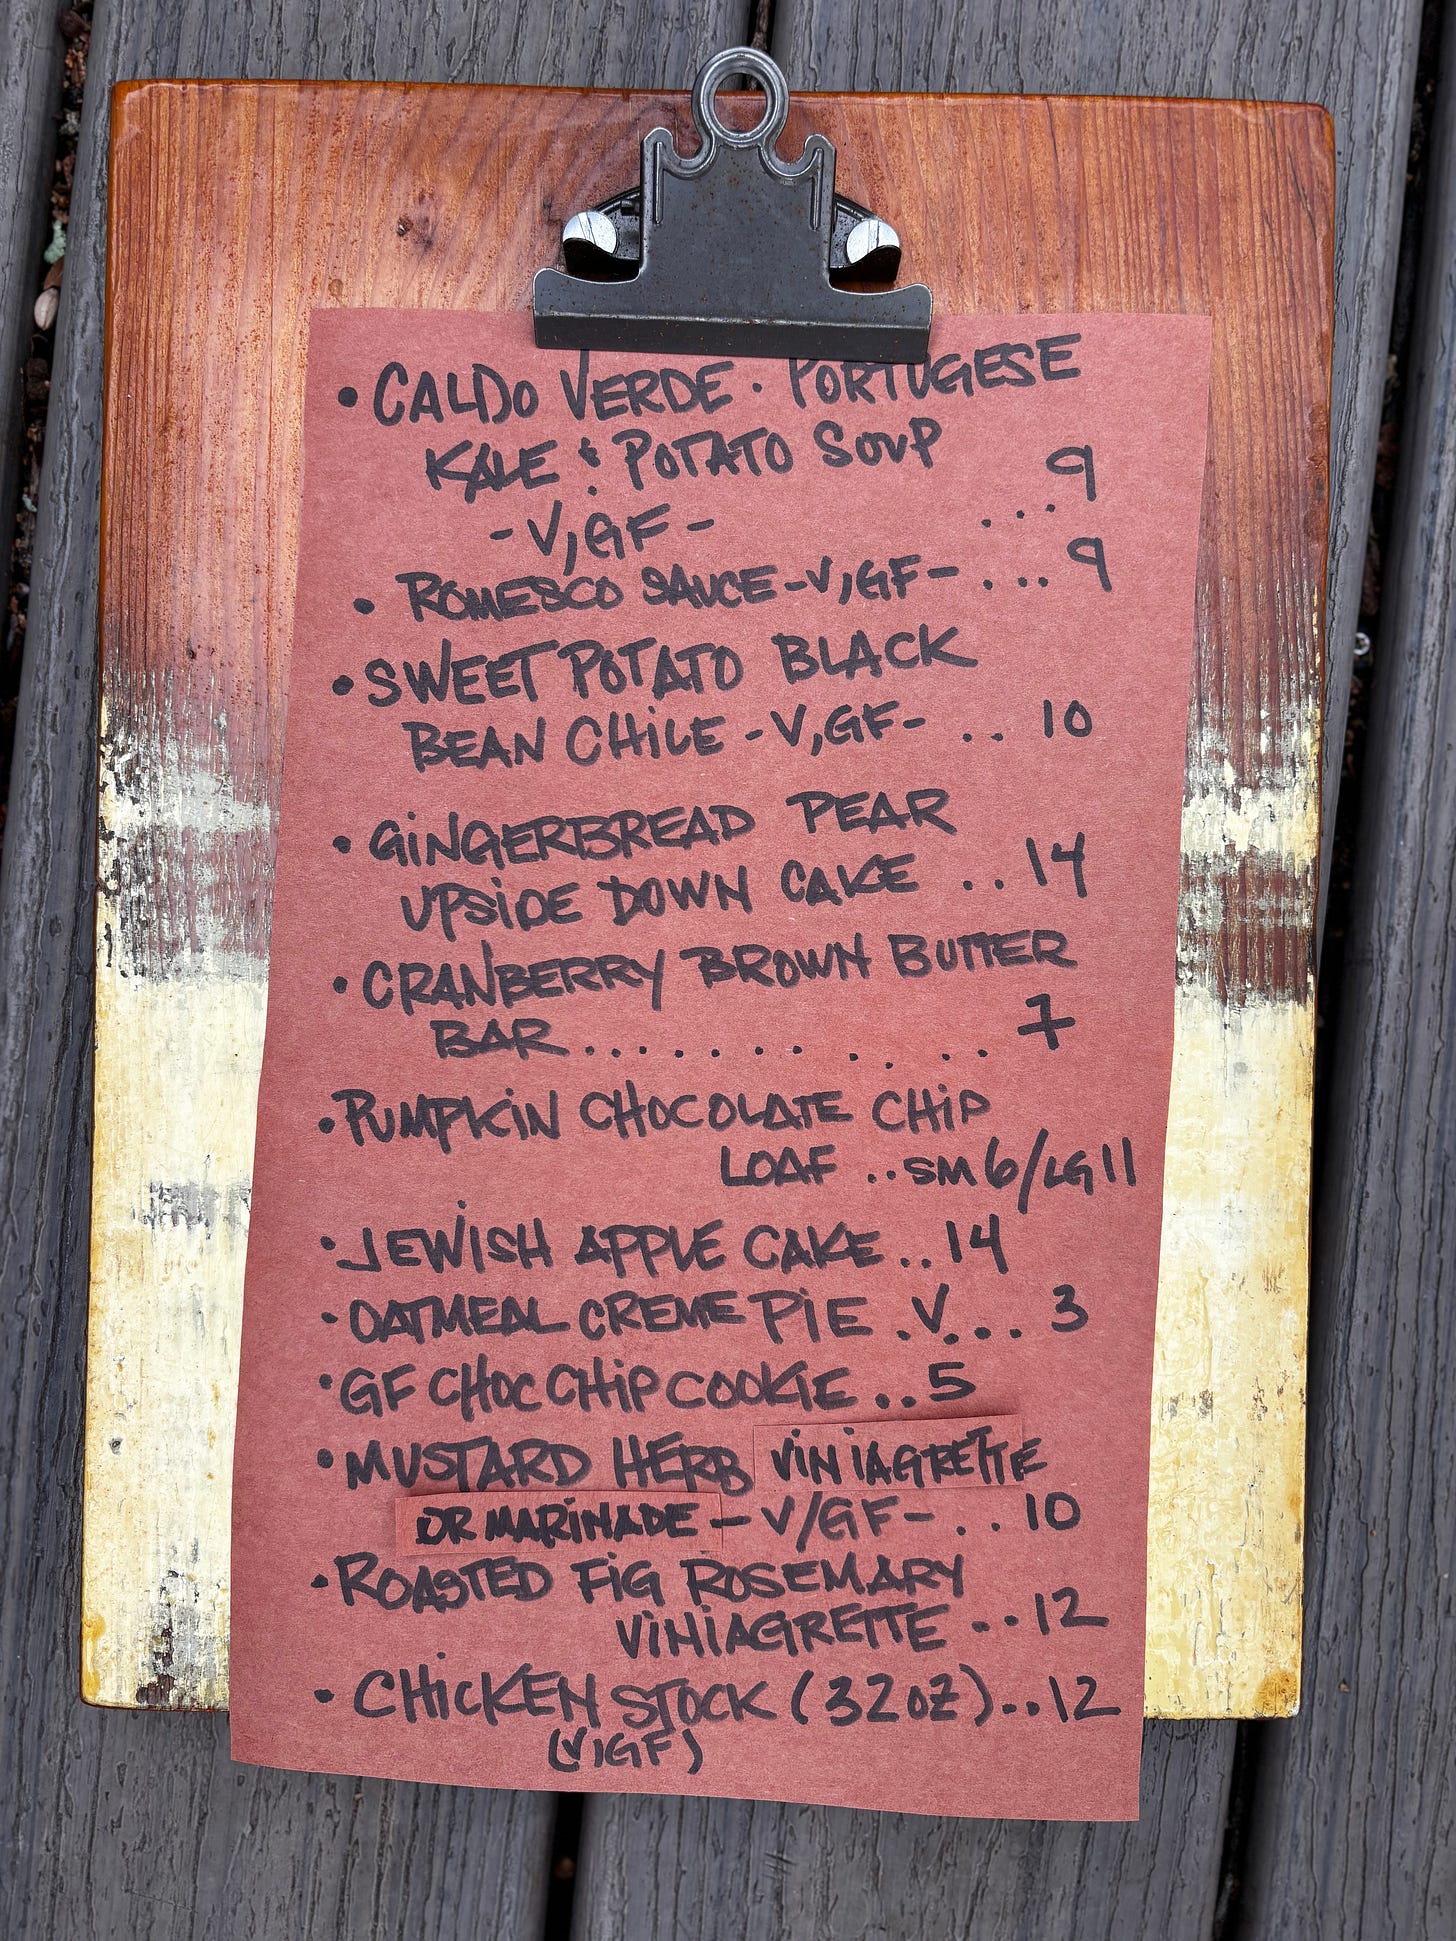 • CALDO VERDE · PORTUGESE
KALE & POTATO SOUP
-V,GF- ... 9
• ROMESCO SAUCE -V,GF- .... 9
• SWEET POTATO BLACK
BEAN CHILE -V,GF- .. 10
• GINGERBREAD PEAR
UPSIDE DOWN CAKE .. 14
• CRANBERRY BROWN BUTTER
BAR ........... 7
• PUMPKIN CHOCOLATE CHIP
LOAF .. SM 6/LG 11
• JEWISH APPLE CAKE .. 14
• OATMEAL CREME PIE .V... 3
• GF CHOC CHIP COOKIE .. 5
• MUSTARD HERB VINIAGRETTE
OR MARINADE - V/GF - .. 10
• ROASTED FIG ROSEMARY
VINIAGRETTE .. 12
• CHICKEN STOCK (32 OZ) .. 12
(V,GF)